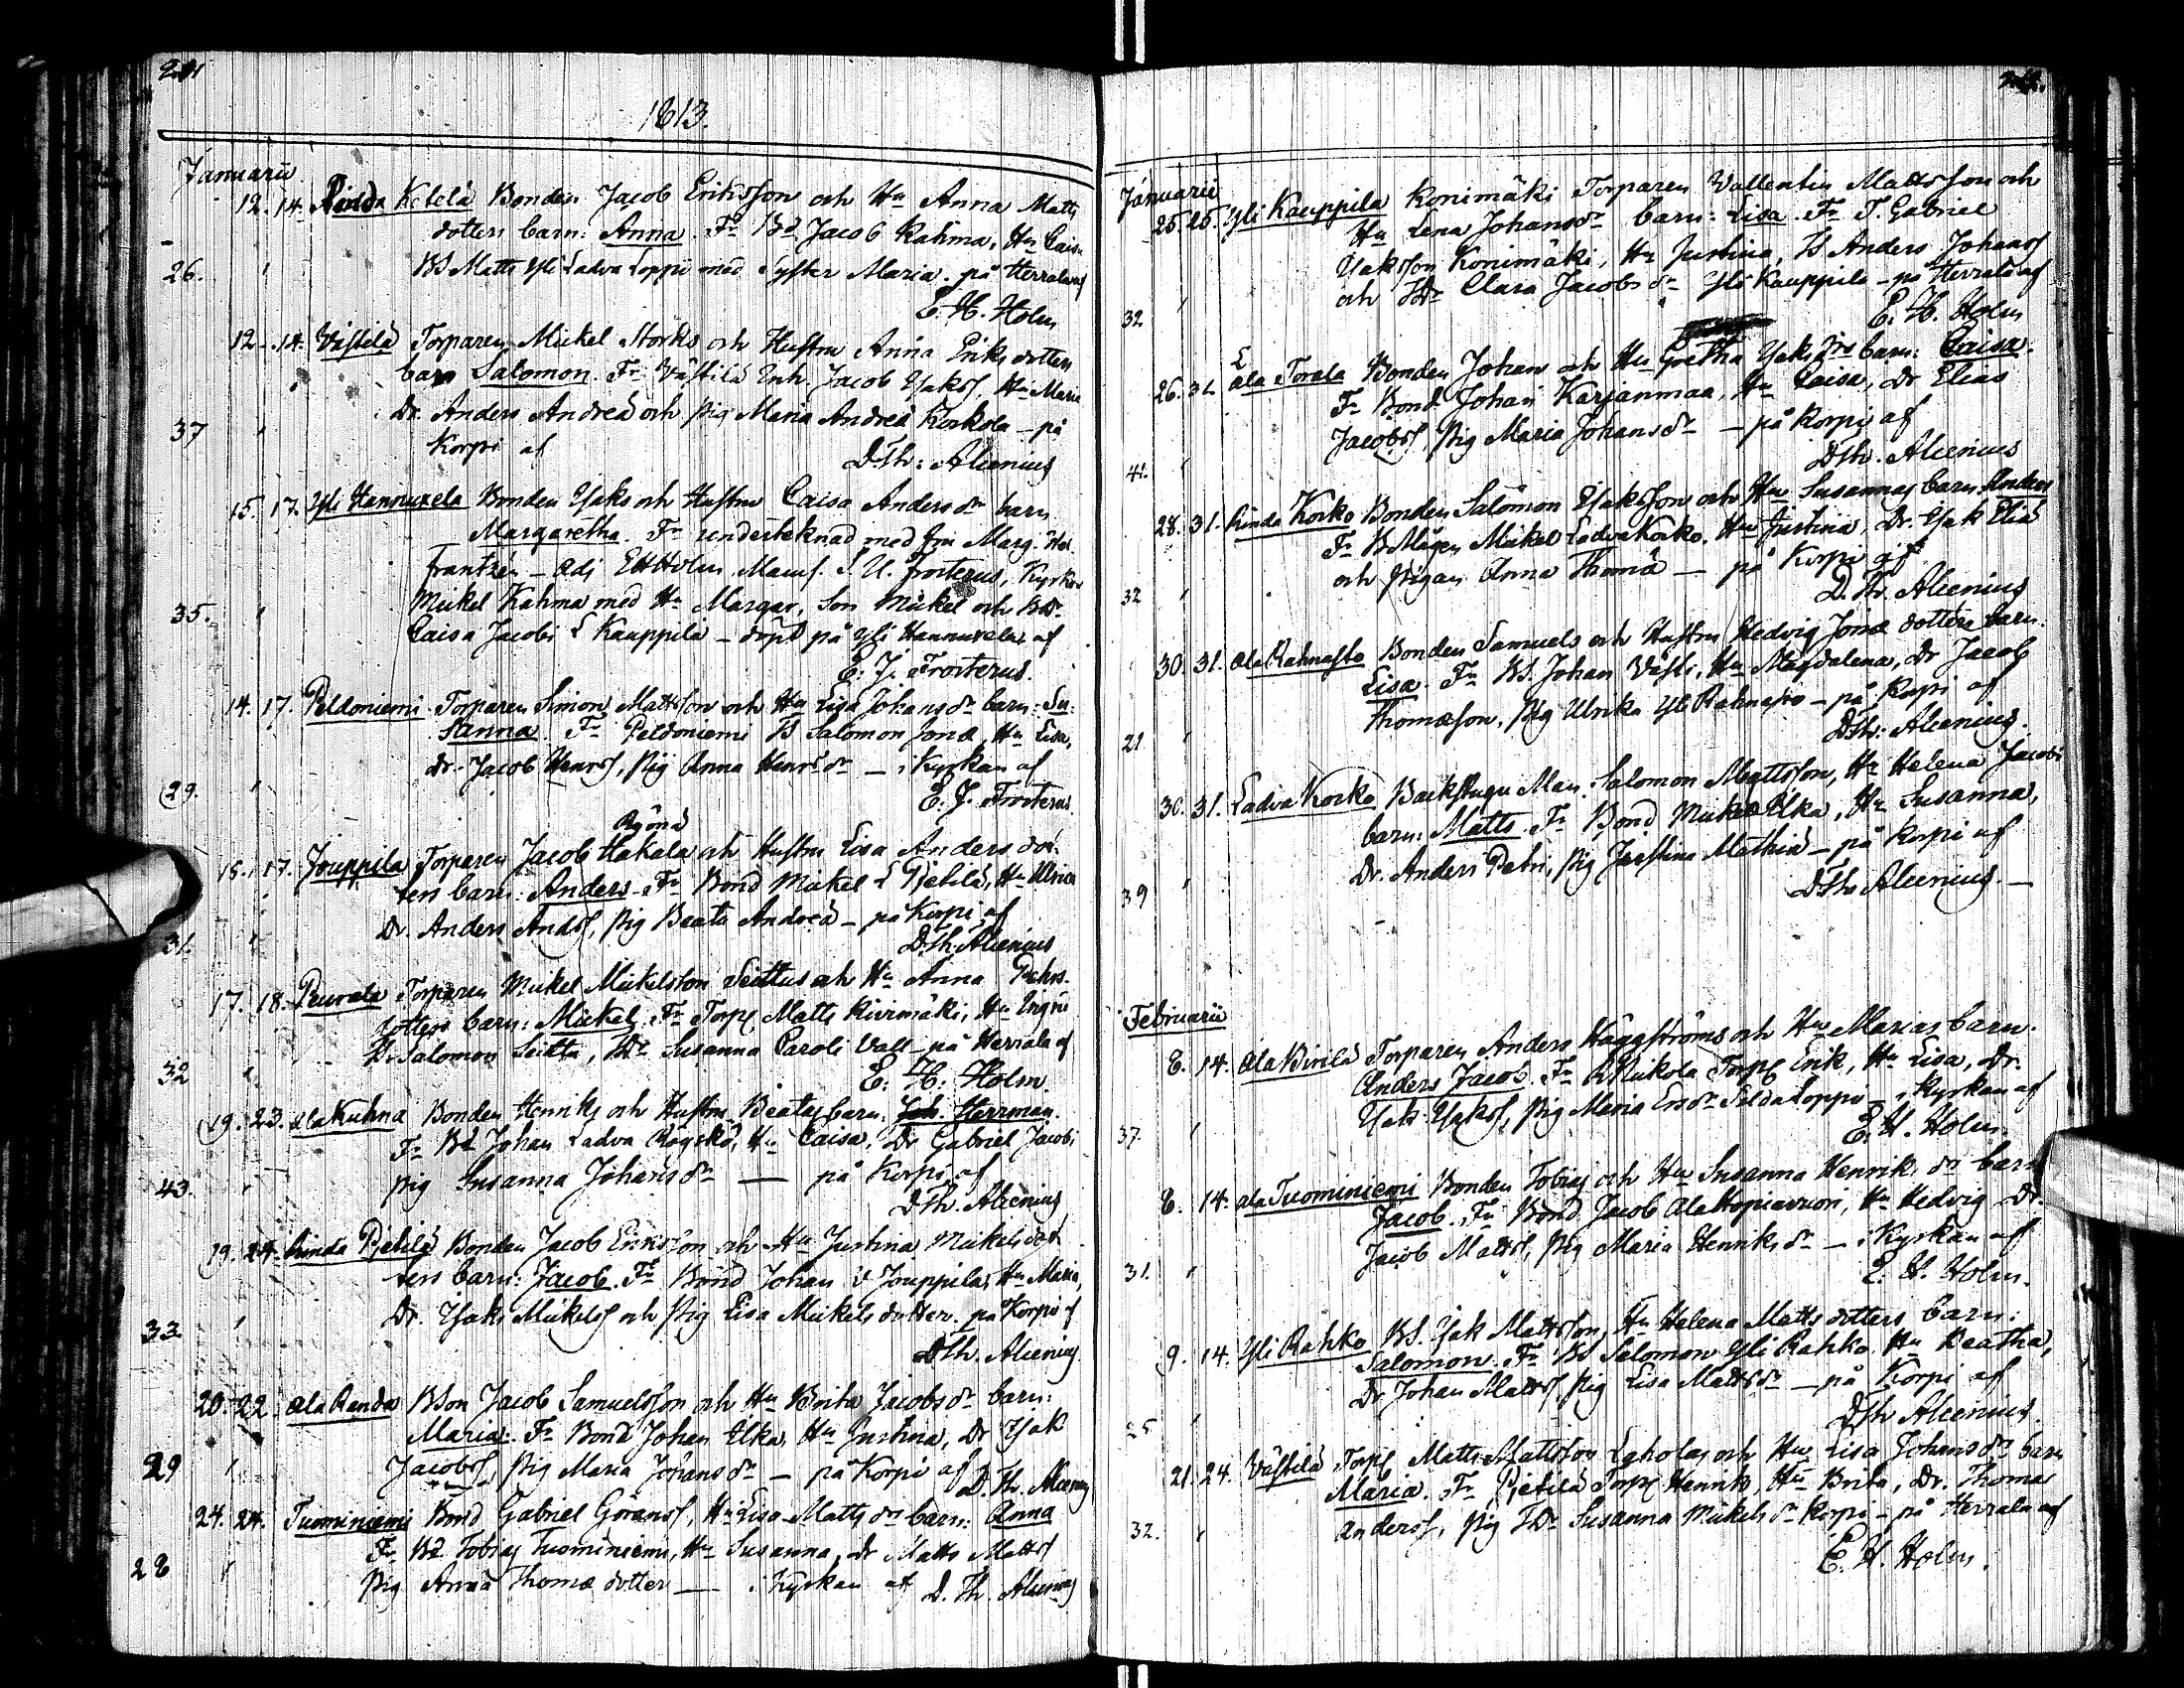 201
1813.
Januarii
12. 14. Rinda Ketelä Bonden Jacob Eriksson och Hu Anna Matts
dotters barn: Anna. Fr Bd Jacob Kahma, Hu Caisa
26. BS Matts Yli Ladva Loppi med Syster Maria på Herrala af
E. H. Holm
12. 14. Västilä Torparen Mickel Storks och Hustru Anna Eriks dotters
barn Salomon. Fr Västilä Inh. Jacob Isaks, Hu Maria
Dr. Anders Andreä och pig Maria Andreä Korkola – på
37 Korpi af D.Th: Alcenius
15. 17. Yli Hannuxela Bonden Isaks och Hustru Caisa Anders dr barn
Margaretha. Fr undertecknad med fru Marg. Hel.
Frantzén – Adj EHHolm Mamf. S. U. Frosterus, Kyrkov
Mickel Kahma med Hu Margar, Son Mickel och BDr
35. Caisa Jacobi L Kauppila – döpt på Yli Hannuxela af
E. J. Frosterus.
14. 17. Peldoniemi Torparen Simon Mattsson och Hu Lisa Johans dr barn: Su-
sanna. Fr Peldoniemi BS Salomon Jonæ, Hu Lisa,
dr. Jacob Henrs, Pig Anna Henrs dr – i Kyrkan af
29. E. J. Frosterus
15. 17. Jouppila Torparen Jacob Hakala och Hustru Lisa Anders dot-
ters barn: Anders. Fr Bond Mickel L Pjetilä, Hu Ulrica
Dr. Anders Ands, Pig Beata Andreä – på Korpi af
31. D.Th. Alcenius
17. 18. Peurala Torparen Mickel Mickelsson Seittus och Hu Anna Pehrs-
dotters barn: Mickel. Fr Torp Matts Kivimäki, Hu
Salomon Seitta, Dr Susanna Caroli Vall – på Herrala af
32 E. H: Holm
19. 23. Ala Kuhna Bonden Henriks och Hustru Beatas barn. Joh. Herrman.
Fr Bd Johan Ladva , Hu Caisa, Dr Gabriel Jacobi
43. pig Susanna Johans dr — på Korpi af
D Th. Alcenius
19. 24. Rinda Pjetilä Bonden Jacob Ericsson och Hu Justina Mickels dot
ters barn: Jacob. Fr Bond Johan Y Jouppila, Hu Maria,
Dr. Isaks Mickels och Pig Lisa Mickels dotter. på Korpi af
33 D Th. Alcenius
20. 22. Ala Randa BSon Jacob Samuelsson och Hu Brita Jacobs dr barn:
Maria. Fr Bond Johan Elka, Hu Justina, Dr Isak
29 Jacobs, Pig Maria Johans dr – på Korpi af D. Th. Alcenius
24. 24. Tuominiemi Bond Gabriel Görans, Hu Lisa Matts dr barn: Anna
Fr Bd Tobias Tuominiemi, Hu Susanna, dr Matts Matts
28 Pig Anna Thomæ dotter — i Kyrkan af D. Th. Alcenius
Januarii
25. 25. Yli Kauppila Konimäki Torparen Vallentin Mattsson och
Hu Lena Johans dr barn: Lisa. Fr T. Gabriel
Isaksson Konimäki, Hu Justina, TS Anders Johans
och TDr Clara Jacobs dr Yli Kauppila – på Herrala af
32 E. H. Holm
26. 31. Ala Torala Bonden Johan och Hu Gretha Isaks drs barn: Caisa.
Fr Bond Johan Karjanmaa, Hu Caisa, Dr Elias
Jacobs, Pig Maria Johans dr – på Korpi af
41. D Th. Alcenius
28. 31. Rinda Korko Bonden Salomon Isaksson och Hu Susannas barn Anders
Fr B Mågen Mickel Ladva Korko, Hu Justina, Dr. Isak Eliä
och Pigan Anna Thomä – på Korpi af
32 D. Th. Alcenius
30. 31. Ala Rahnasto Bonden Samuels och Hustru Hedvig Jonæ dotters barn.
Lisa. Fr BS. Johan Västi, Hu Magdalena, dr Jacob
Thomæson, Pig Ulrika Yli Rahnasto – på Korpi af
21 D Th: Alcenius.
30. 31. Ladva Korko Backstugu Man. Salomon Mattsson, Hu Helena Jacobi
barn: Matts. Fr Bond Mickel Elka, Hu Susanna,
Dr. Anders Petri, Pig Justina Mathiä – på Korpi af
39 D Th Alcenius. –
Februarii
8. 14. Ala Virilä Torparen Anders Häggströms och Hu Marias barn.
Anders Jacob. Fr R Nikola Torp Erik, Hu Lisa, Dr.
Isak Isaks, Pig Maria Ers dr Loppi – i Kyrkan af
37. E. H. Holm.
8. 14. Ala Tuominiemi Bonden Tobias och Hu Susanna Henriks dr barn
Jacob. Fr Bond Jacob Ala Hopiavuori, Hu Hedvig Dr.
Jacob Matts, Pig Maria Henriks dr – i Kyrkan af
31. E. H. Holm.
9. 14. Yli Rahko BS. Isak Mattsson, Hu Helena Matts dotters barn:
Salomon. Fr BS Salomon Yli Rahko. Hu Beatha,
Dr Johan Matts, Pig Lisa Matts dr – på Korpi af
25 D Th Alcenius.
21. 24. Västilä Torp Matts Mattsson och Hu Lisa Johans dr barn
Maria. Fr Pjetilä Torp Henrik, Hu Brita, Dr. Thomas
32. Anders, Pig TDr Susanna Mickels dr Korpi – på Herrala af
E. H. Holm.